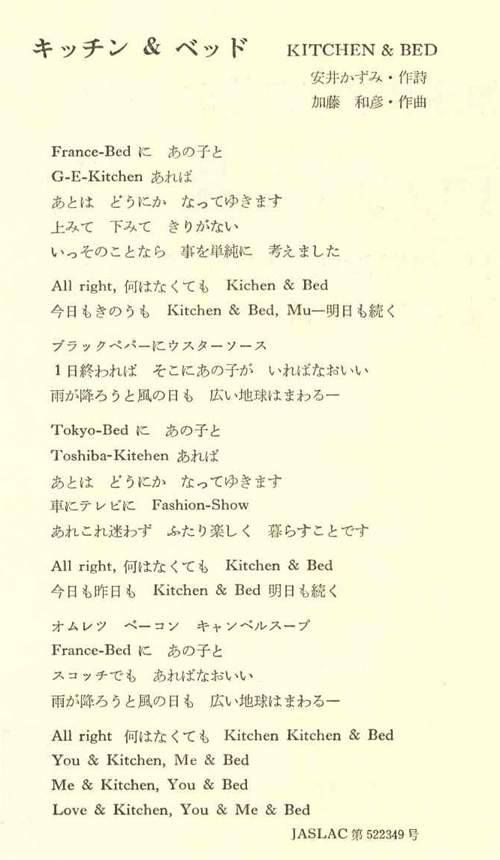 キッチン & ベッド KITCHEN & BED
安井かずみ・作詩
加藤 和彦・作曲
France-Bed に あの子と
G-E-Kitchen あれば
あとは どうにか なってゆきます
上みて 下みて きりがない
いっそのことなら 事を単純に 考えました
All right, 何はなくても Kichen & Bed
今日もきのうも Kitchen & Bed, Mu―明日も続く
ブラックペパーにウスターソース
1日終われば そこにあの子が いればなおいい
雨が降ろうと風の日も 広い地球はまわるー
Tokyo-Bed に あの子と
Toshiba-Kitehen あれば
あとは どうにか なってゆきます
車にテレビに Fashion-Show
あれこれ迷わず ふたり楽しく 暮らすことです
All right, 何はなくても Kitchen & Bed
今日も昨日も Kitchen & Bed 明日も続く
オムレツ ベーコン キャンベルスープ
France-Bed に あの子と
スコッチでも あればなおいい
雨が降ろうと風の日も 広い地球はまわるー
All right 何はなくても Kitchen Kitchen & Bed
You & Kitchen, Me & Bed
Me & Kitchen, You & Bed
Love & Kitchen, You & Me & Bed
JASLAC 第 522349 号